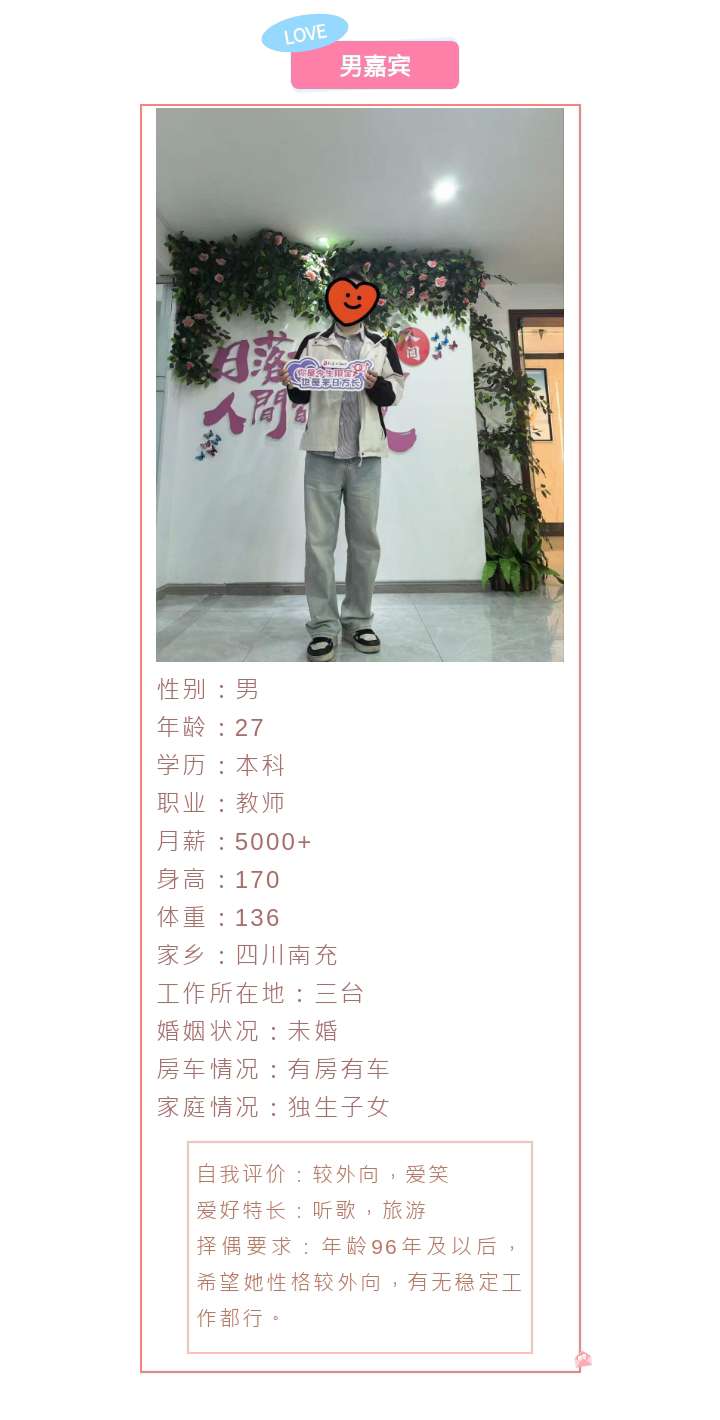 LOVE
男嘉宾
日落
人间
人間
你是今生限定
也是来日方长
性别：男
年龄：27
学历：本科
职业：教师
月薪：5000+
身高：170
体重：136
家乡：四川南充
工作所在地：三台
婚姻状况：未婚
房车情况：有房有车
家庭情况：独生子女
自我评价：较外向，爱笑
爱好特长：听歌，旅游
择偶要求：年龄96年及以后，
希望她性格较外向，有无稳定工
作都行。